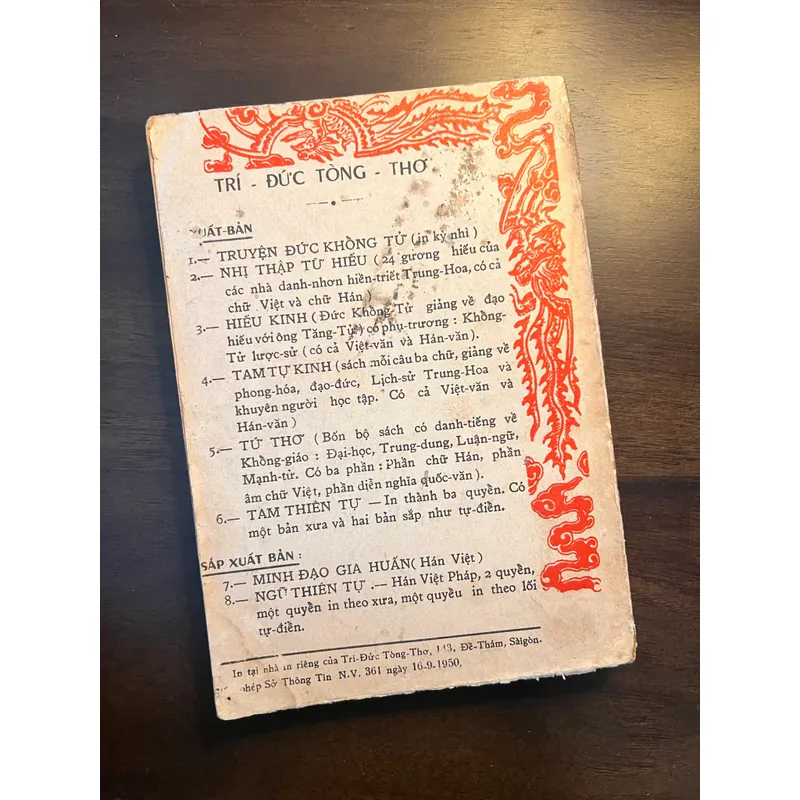 TRÍ - ĐỨC TÒNG - THƠ
XUẤT-BẢN
1.— TRUYỆN ĐỨC KHỒNG TỬ (in kỳ nhì)
2.— NHỊ THẬP TỪ HIẾU (24 gương hiếu của
các nhà danh-nhơn hiền-triết Trung-Hoa, có cả
chữ Việt và chữ Hán)
3.— HIẾU KINH (Đức Khồng-Tử giảng về đạo
hiếu với ông Tăng-Tử) có phụ-trương : Khồng-
Tử lược-sử (có cả Việt-văn và Hán-văn).
4.— TAM TỰ KINH (sách mỗi câu ba chữ, giảng về
phong-hóa, đạo-đức, Lịch-sử Trung-Hoa và
khuyên người học tập. Có cả Việt-văn và
Hán-văn)
5.— TỨ THƠ (Bốn bộ sách có danh-tiếng về
Khồng-giáo : Đại-học, Trung-dung, Luận-ngữ,
Mạnh-tử. Có ba phần : Phần chữ Hán, phần
âm chữ Việt, phần diễn nghĩa quốc-văn).
6.— TAM THIÊN TỰ — In thành ba quyền. Có
một bản xưa và hai bản sắp như tự-điền.
SẮP XUẤT BẢN :
7.— MINH ĐẠO GIA HUẤN (Hán Việt)
8.— NGŨ THIÊN TỰ .— Hán Việt Pháp, 2 quyền,
một quyền in theo xưa, một quyều in theo lối
tự-điền.
In tại nhà in riêng của Trí-Đức Tòng-Thơ, 143, Đề-Thám, Sàigòn.
phép Sở Thông Tin N.V. 361 ngày 16-9-1950,